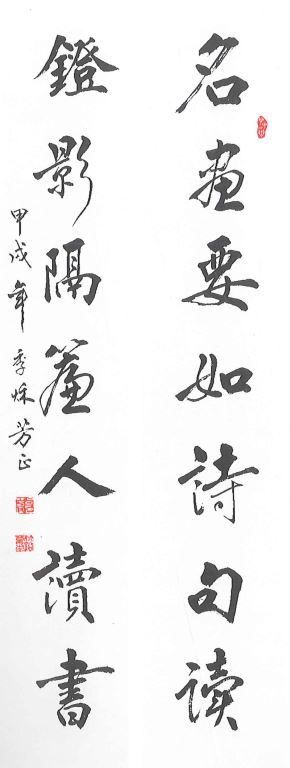 名畫要如詩句读
鐙影隔簾人讀書
甲戌年季秌芳正